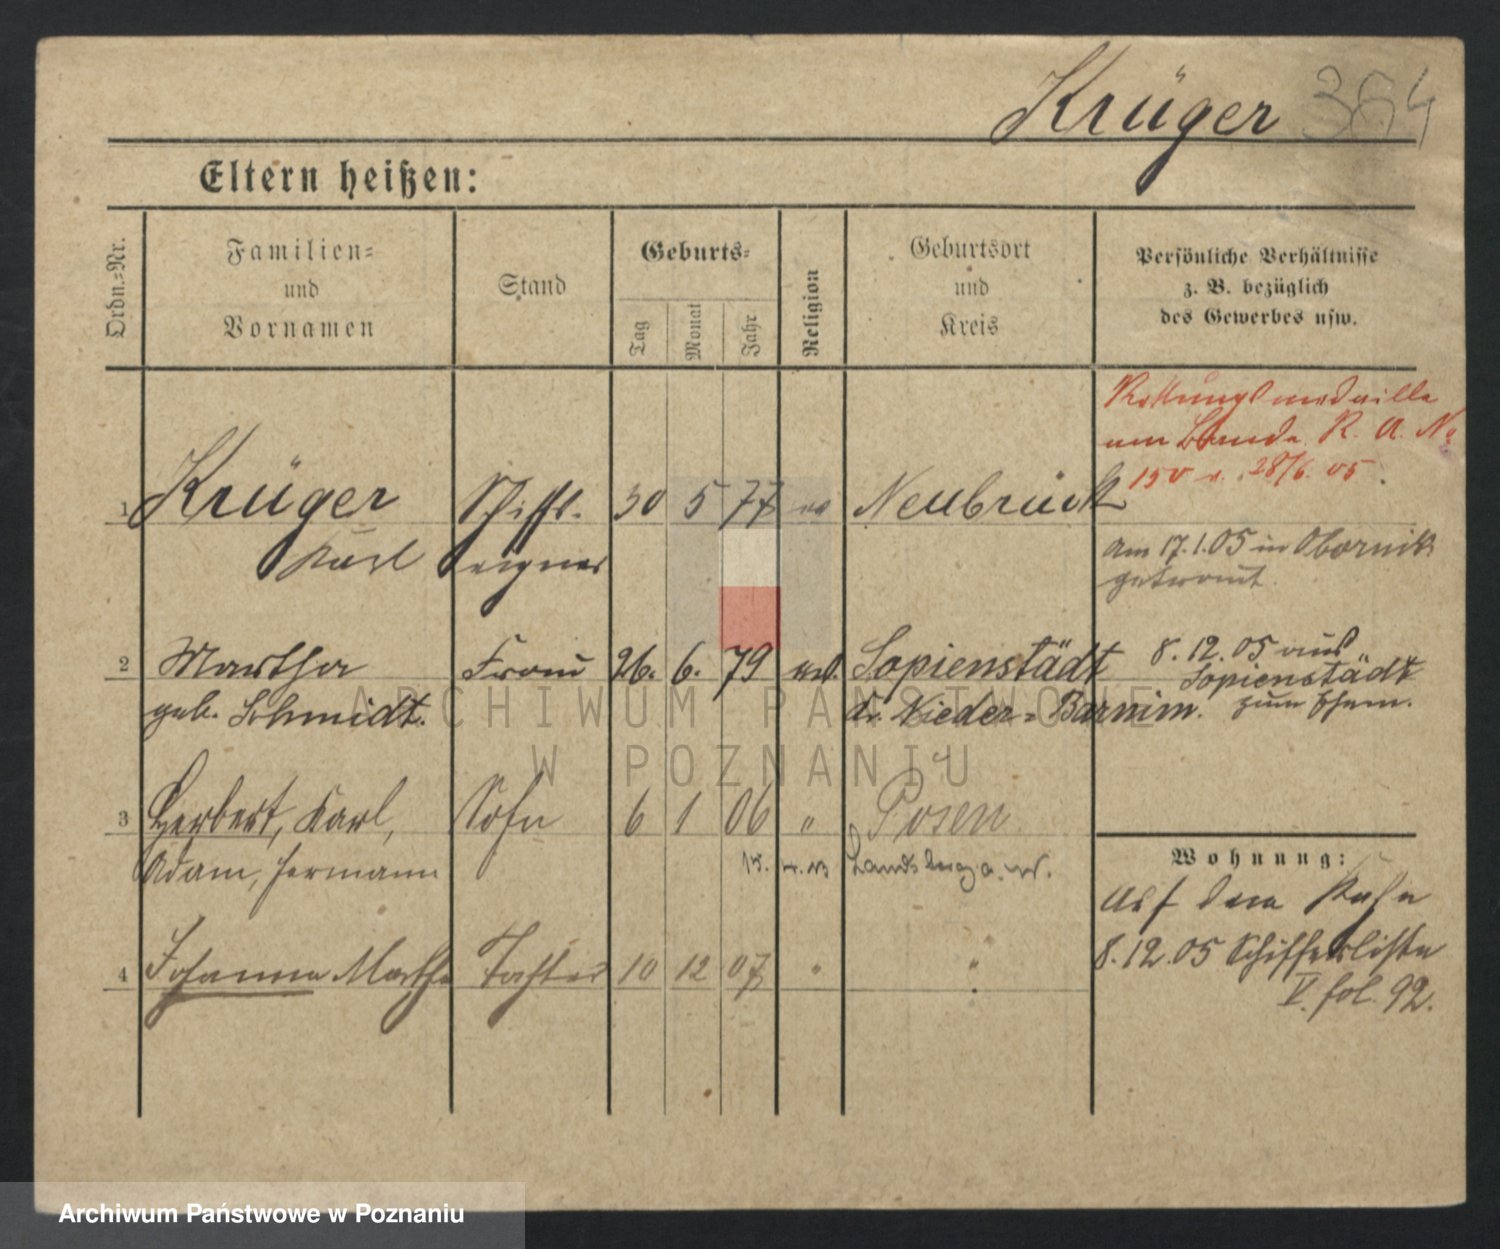 Krüger 364
Eltern heißen:
Ordn.-Nr.
Familien-
und
Vornamen
Stand
Geburts-
Tag
Monat
Jahr
Religion
Geburtsort
und
Kreis
Persönliche Verhältnisse
z. B. bezüglich
des Gewerbes usw.
Rettungsmedaille
am Bande R. A. No
150 v. 28/6. 05.
1 Krüger Schiffs- 30 5 77 ev Neubrück
Karl eigner
am 17.1.05 in Obornik
getraut.
2 Martha Frau 26. 6. 79 Sopienstädt
geb. Schmidt. Kr. Nieder-Barnim.
8.12.05 aus
Sopienstädt
zum Ehem.
3 Herbert, Karl, Sohn 6 1 06 " Posen
Adam, Hermann Landsberg a. W.
4 Johanna Martha Tochter 10 12 07 " "
Wohnung:
Auf dem Kahn
8.12.05 Schifferliste
V. fol. 92.
ARCHIWUM PAŃSTWOWE
W POZNANIU
Archiwum Państwowe w Poznaniu